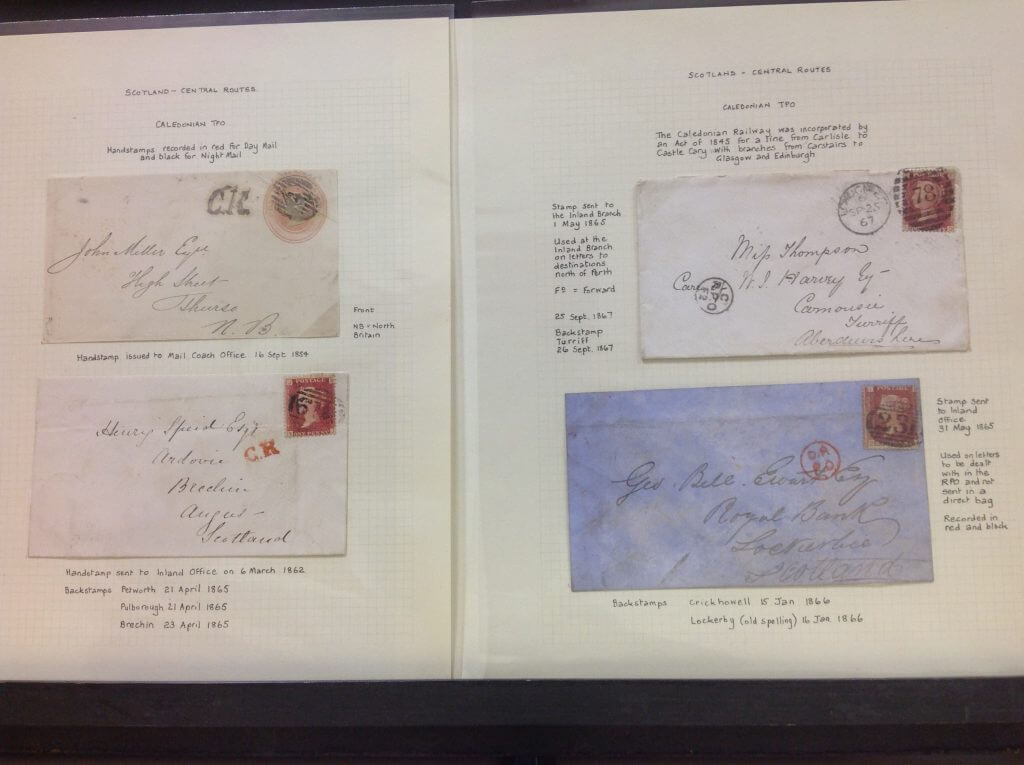 SCOTLAND - CENTRAL ROUTES
CALEDONIAN TPO
Handstamps recorded in red for Day Mail
and black for Night Mail
C.R.
John Miller Esqr
High Street
Thurso
N. B
Front
NB = North
Britain
Handstamp issued to Mail Coach Office 16 Sept 1854
POSTAGE
ONE PENNY
Henry Speid Esqr
C.R.
Ardovie
Brechin
Angus
Scotland
Handstamp sent to Inland Office on 6 March 1862
Backstamps Petworth 21 April 1865
Pulborough 21 April 1865
Brechin 23 April 1865
SCOTLAND - CENTRAL ROUTES
CALEDONIAN TPO
The Caledonian Railway was incorporated by
an Act of 1845 for a line from Carlisle to
Castle Cary with branches from Carstairs to
Glasgow and Edinburgh
Stamp sent to
the Inland Branch
1 May 1865
Used at the
Inland Branch
on letters to
destinations
north of Perth
FD = Forward
25 Sept. 1867
Backstamp
Turriff
26 Sept. 1867
SP 25
67
78
Miss Thompson
W. J. Harvey Esq
Carnousie
Turriff
Aberdeenshire
RPO
POSTAGE
Geo. Bell. Ewart Esq
Royal Bank
Lockerbee
Scotland
Stamp sent
to Inland
Office
31 May 1865
Used on letters
to be dealt
with in the
RPO and not
sent in a
direct bag
Recorded in
red and black
Backstamps Crickhowell 15 Jan 1866
Lockerby (old spelling) 16 Jan 1866